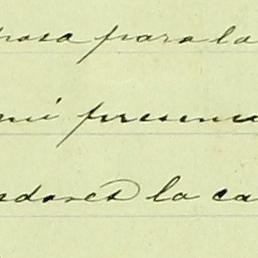 posa para la
mi presen
dores la ca